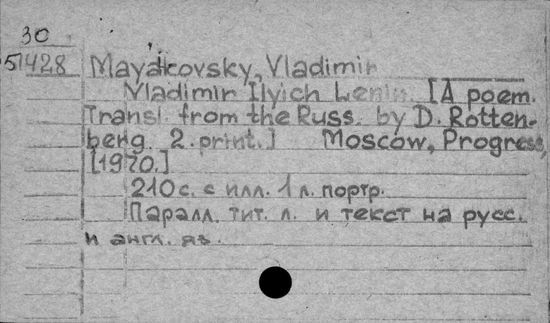 30
51428
Mayakovsky, Vladimir
Vladimir Ilyich Lenin. [A poem.
Transl. from the Russ. by D. Rotten-
berg. 2. print.] Moscow, Progress,
[1970.]
210 с. с илл. 1 л. портр.
Паралл. тит. л. и текст на русс.
и англ. яз.